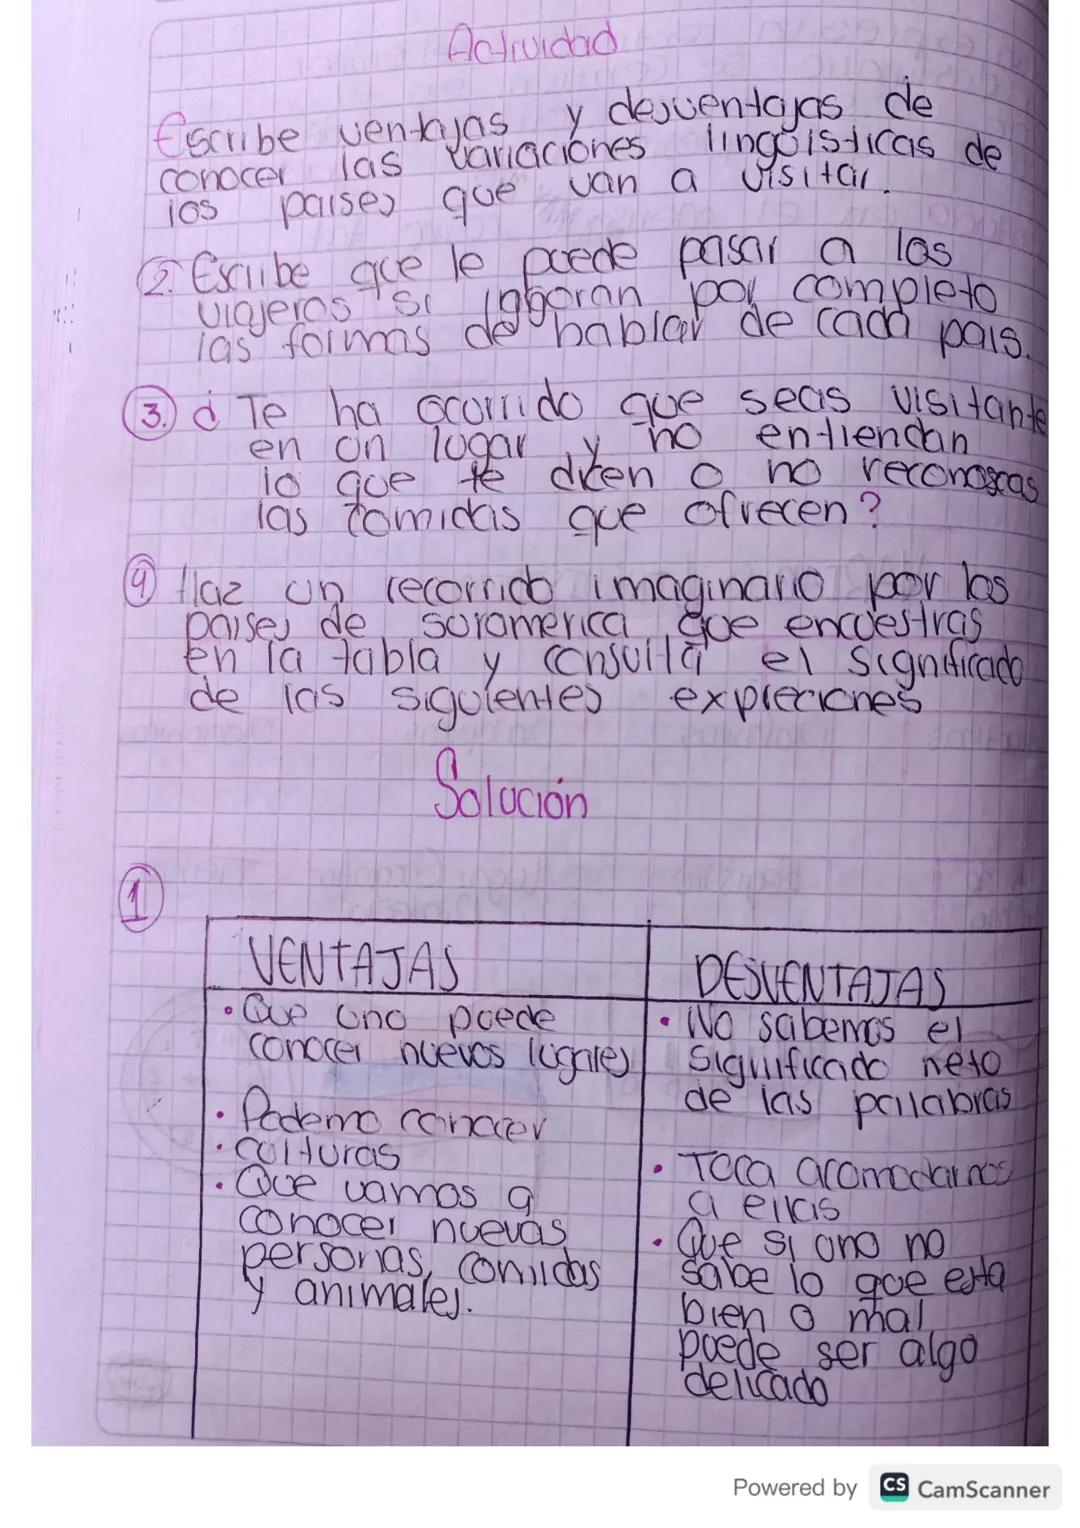 Actividad
Escribe ventajas y desventajas de
conocer las variaciones lingüisticas de
los paises que van a visitar.
2. Escribe que le puede pasar a los
viajeros si ignoran por completo
las formas de hablar de cada pais.
3. ¿Te ha ocurrido que seas visitante
en un lugar y no entiendan
lo que te dicen o no reconoscas
las comidas que ofrecen?
4 Haz un recorrido imaginario por los
paises de suramerica que encuestras
en la tabla y consulta el significado
de las siguientes expreciones
Solución
1
VENTAJAS
• Que uno puede
conocer nuevos lugares
• Podemo conocer
• culturas
• Que vamos a
conocer nuevas
personas, comidas
y animales.
DESVENTAJAS
• No sabemos el
significado neto
de las palabras
• Toca acomodarnos
a ellas
• Que si uno no
sabe lo que esta
bien o mal
puede ser algo
delicado
Powered by CS CamScanner